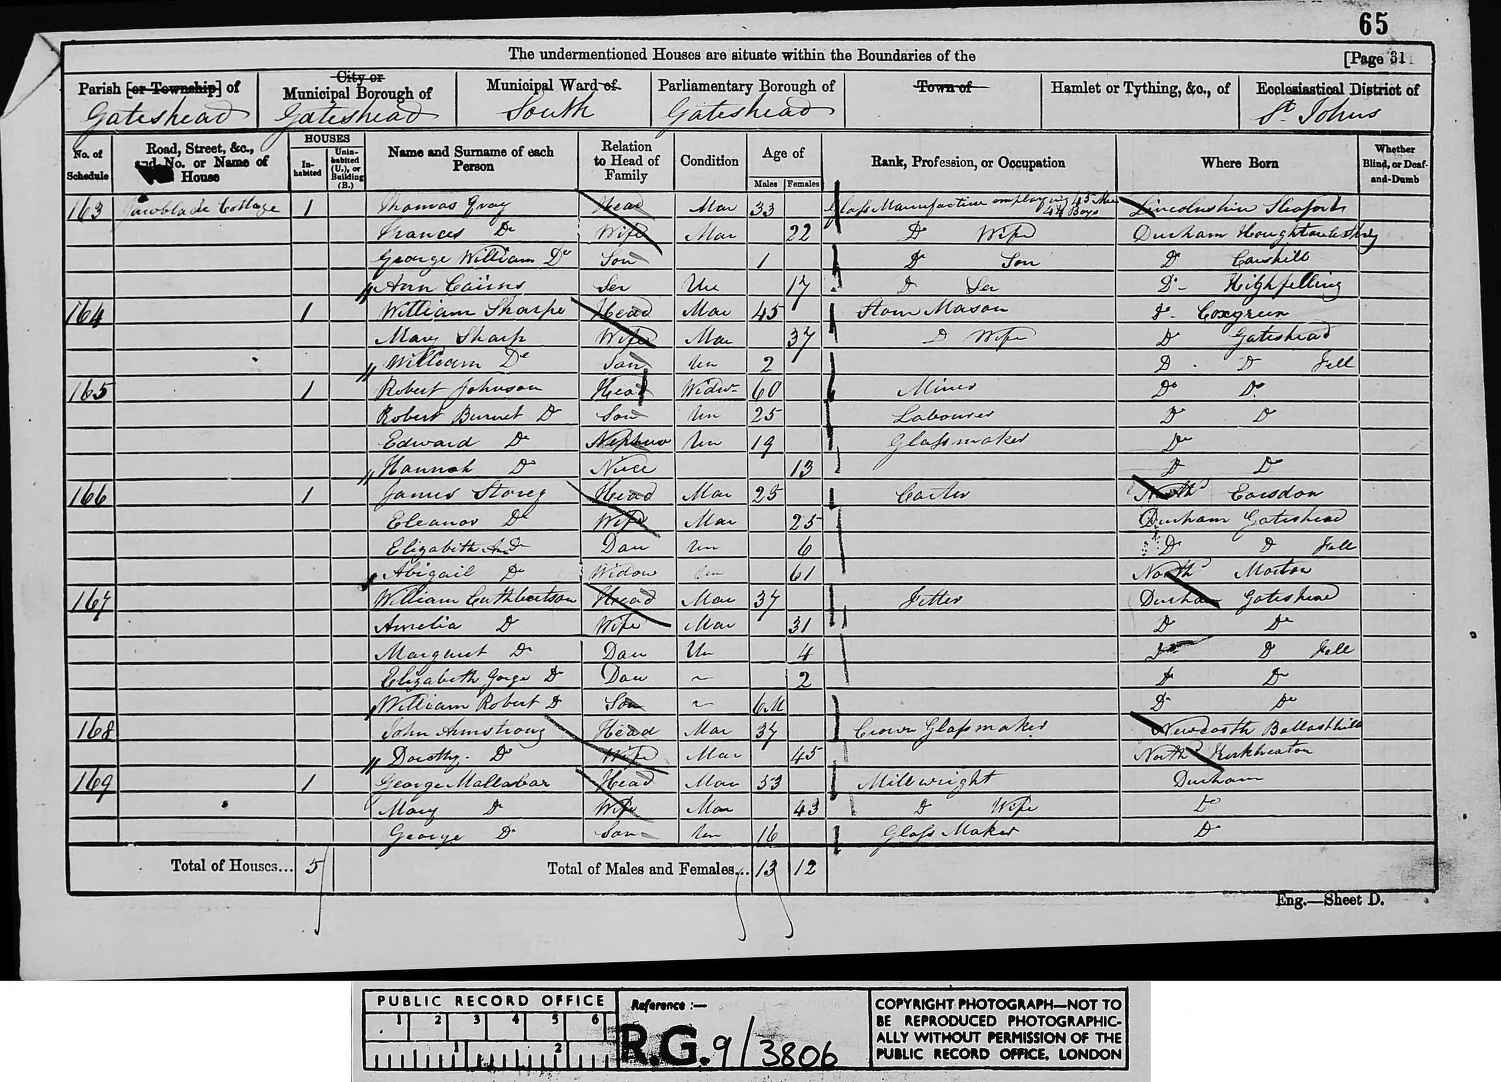 65
The undermentioned Houses are situate within the Boundaries of the [Page 31
Parish [or Township] of Municipal Borough of City or Municipal Ward of Parliamentary Borough of Town of Hamlet or Tything, &c., of Ecclesiastical District of
Gateshead Gateshead South Gateshead St Johns
No. of Schedule Road, Street, &c., and No. or Name of House HOUSES Inhabited Uninhabited (U.), or Building (B.) Name and Surname of each Person Relation to Head of Family Condition Age of Males Females Rank, Profession, or Occupation Where Born Whether Blind, or Deaf-and-Dumb
163 Cottage 1 Thomas Gray Head Mar 33 Glass Manufacture employing 45 Men 44 Boys Lincolnshire
Frances Do Wife Mar 22 Do Wife Durham
George William Do Son 1 Do Son Do
Ann Cairns Ser Un 17 Do Ser Do High felling
164 1 William Sharpe Head Mar 45 Stone Mason Do Coxgreen
Mary Sharp Wife Mar 37 Do Wife Do Gateshead
William Do Son Un 2 Do Do Fell
165 1 Robert Johnson Head Widr 60 Miner Do Do
Robert Burnet Do Son Un 25 Labourer Do Do
Edward Do Nephew Un 19 Glassmaker Do
Hannah Do Niece 13 Do Do
166 1 James Storey Head Mar 25 Carter North Earsdon
Eleanor Do Wife Mar 25 Durham Gateshead
Elizabeth Ann Do Dau Un 6 Do Do Fell
Abigail Do Widow Un 61 North Morton
167 William Cuthbertson Head Mar 37 Fitter Durham Gateshead
Amelia Do Wife Mar 31 Do Do
Margaret Do Dau Un 4 Do Do Fell
Elizabeth Do Dau ~ 2 Do Do
William Robert Do Son ~ 6M Do Do
168 John Armstrong Head Mar 37 Crown Glassmaker Newcastle Ballasthill
Dorothy Do Wife Mar 45 North Kirkheaton
169 1 George Mallabar Head Mar 53 Millwright Durham
Mary Do Wife Mar 43 Do Wife Do
George Do Son Un 16 Glass Maker Do
Total of Houses... 5 Total of Males and Females... 13 12
Eng.—Sheet D.
PUBLIC RECORD OFFICE
1 2 3 4 5 6
1 2
Reference :—
R.G. 9/3806
COPYRIGHT PHOTOGRAPH—NOT TO
BE REPRODUCED PHOTOGRAPHIC-
ALLY WITHOUT PERMISSION OF THE
PUBLIC RECORD OFFICE, LONDON